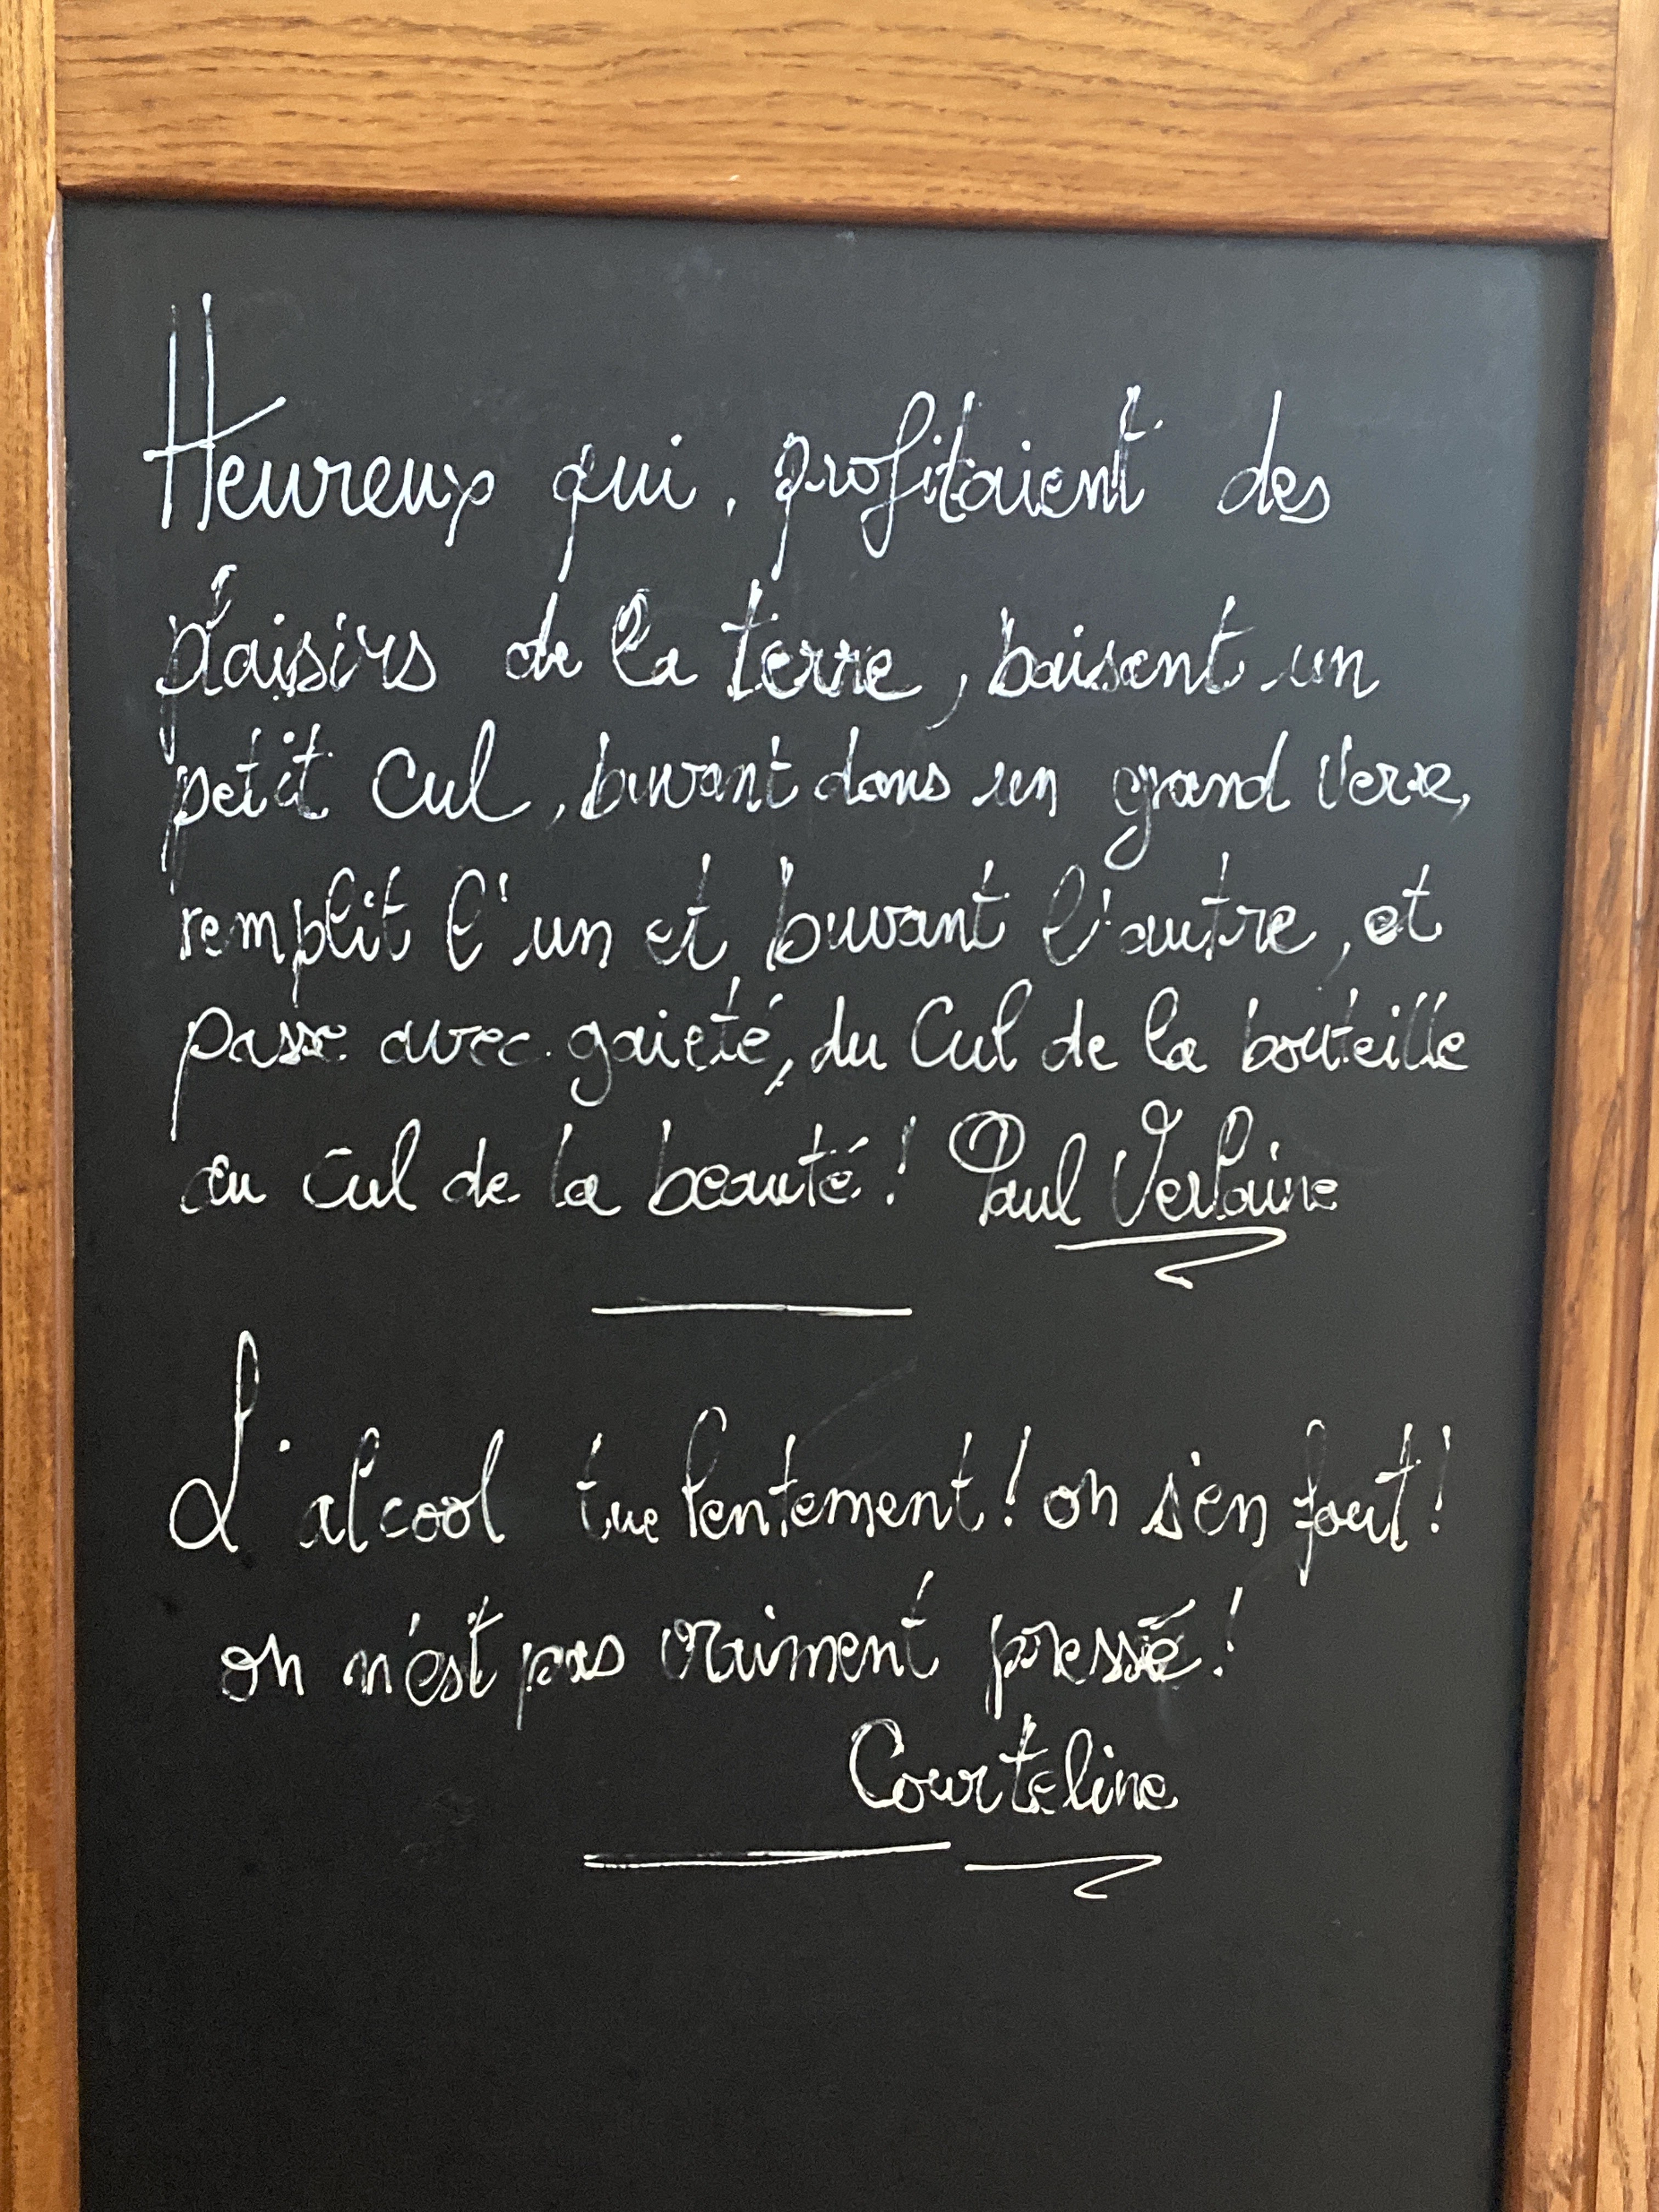 Heureux qui, profitaient des
plaisirs de la terre, baisent un
petit Cul, buvant dans un grand verre,
remplit l'un et buvant l'autre, et
passe avec gaieté, du Cul de la bouteille
au Cul de la beauté! Paul Verlaine
L'alcool tue lentement! on s'en fout!
on n'est pas vraiment pressé!
Courteline